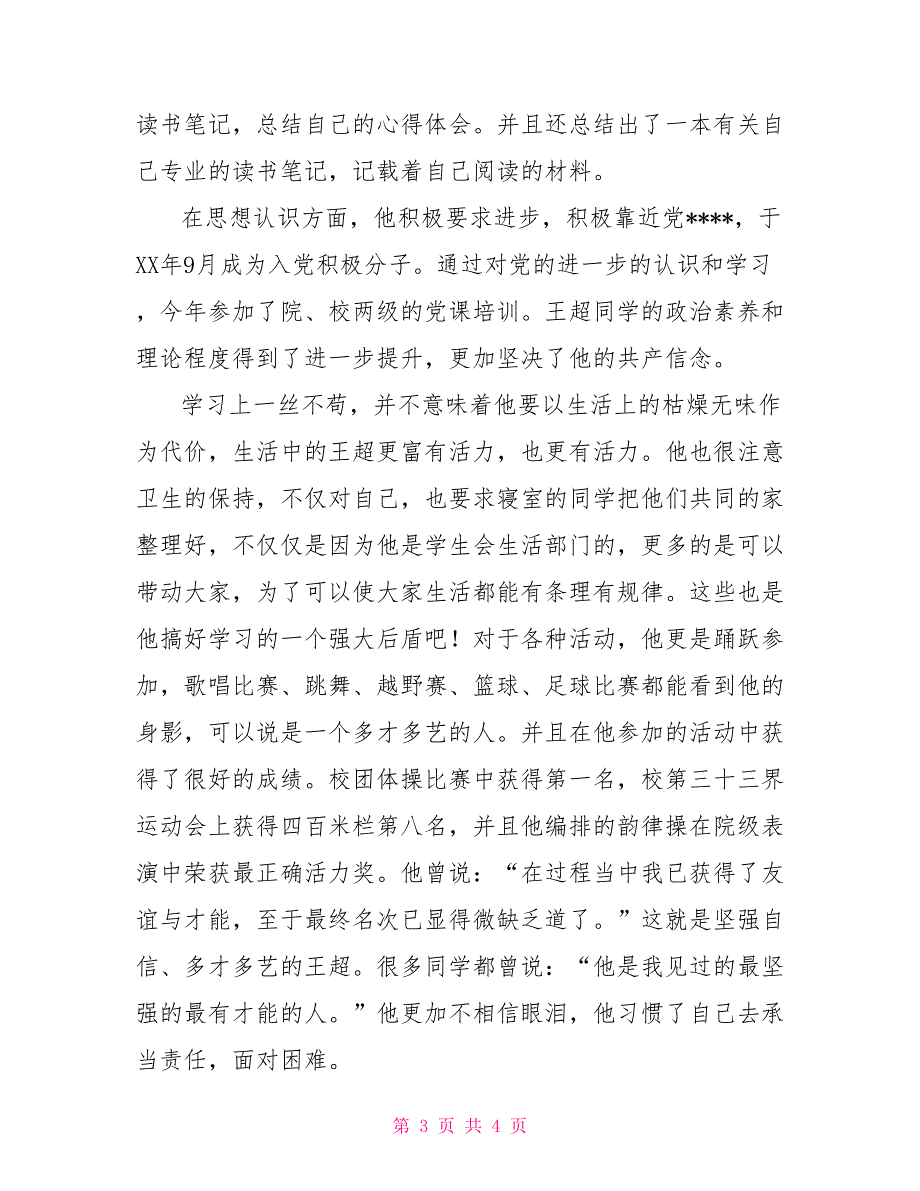 读书笔记，总结自己的心得体会。并且还总结出了一本有关自
己专业的读书笔记，记载着自己阅读的材料。
在思想认识方面，他积极要求进步，积极靠近党****，于
XX年9月成为入党积极分子。通过对党的进一步的认识和学习
，今年参加了院、校两级的党课培训。王超同学的政治素养和
理论程度得到了进一步提升，更加坚决了他的共产信念。
学习上一丝不苟，并不意味着他要以生活上的枯燥无味作
为代价，生活中的王超更富有活力，也更有活力。他也很注意
卫生的保持，不仅对自己，也要求寝室的同学把他们共同的家
整理好，不仅仅是因为他是学生会生活部门的，更多的是可以
带动大家，为了可以使大家生活都能有条理有规律。这些也是
他搞好学习的一个强大后盾吧！对于各种活动，他更是踊跃参
加，歌唱比赛、跳舞、越野赛、篮球、足球比赛都能看到他的
身影，可以说是一个多才多艺的人。并且在他参加的活动中获
得了很好的成绩。校团体操比赛中获得第一名，校第三十三界
运动会上获得四百米栏第八名，并且他编排的韵律操在院级表
演中荣获最正确活力奖。他曾说：“在过程当中我已获得了友
谊与才能，至于最终名次已显得微缺乏道了。”这就是坚强自
信、多才多艺的王超。很多同学都曾说：“他是我见过的最坚
强的最有才能的人。”他更加不相信眼泪，他习惯了自己去承
当责任，面对困难。
第 3 页 共 4 页